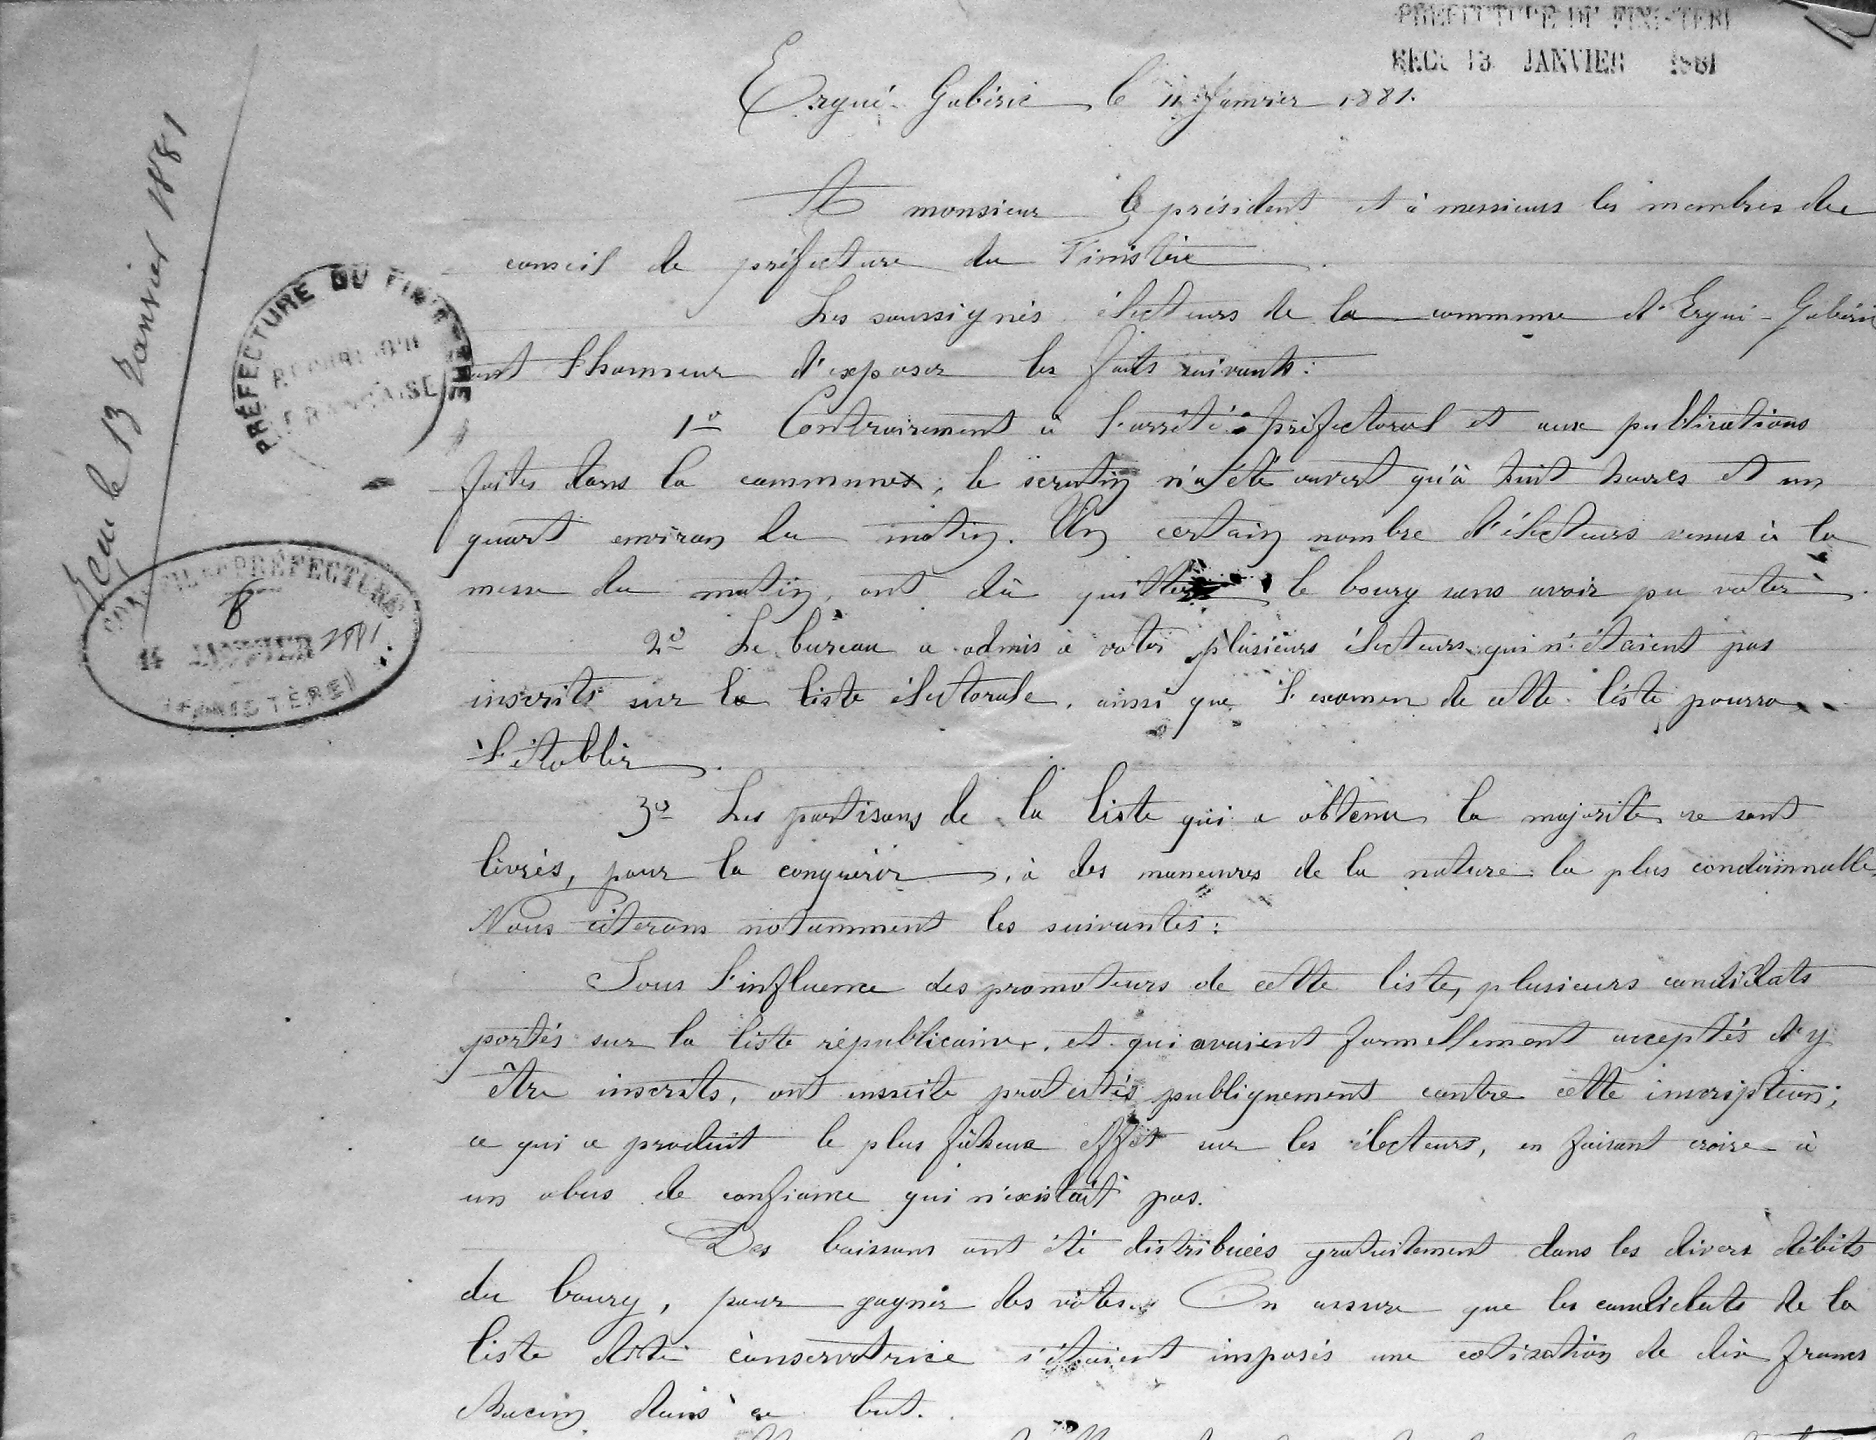 PREFECTURE DU FINISTERE
REÇU 13 JANVIER 1881
Ergué-Gabéric le 11 Janvier 1881.
Reçu le 13 Janvier 1881
A monsieur le président et à messieurs les membres du
conseil de préfecture du Finistère.
PRÉFECTURE DU FINISTÈRE
RÉPUBLIQUE
FRANÇAISE
Les soussignés électeurs de la commune d'Ergué-Gabéric
ont l'honneur d'exposer les faits suivants:
1º Contrairement à l'arrêté préfectoral et aux publications
faites dans la commune, le scrutin n'a été ouvert qu'à huit heures et un
quart environ du matin. Un certain nombre d'électeurs venus à la
messe du matin, ont dû quitter le bourg sans avoir pu voter.
CONSEIL DE PRÉFECTURE
8
14 JANVIER 1881
(FINISTÈRE)
2º Le bureau a admis à voter plusieurs électeurs qui n'étaient pas
inscrits sur la liste électorale, ainsi que l'examen de cette liste pourra
l'établir.
3º Les partisans de la liste qui a obtenu la majorité se sont
livrés, pour la conquérir, à des maneuvres de la nature la plus condamnable,
Nous citerons notamment les suivantes:
Sous l'influence des promoteurs de cette liste, plusieurs candidats
portés sur la liste républicaine, et qui avaient formellement acceptés d'y
être inscrits, ont ensuite protestés publiquement contre cette inscription;
ce qui a produit le plus fâcheux effet sur les électeurs, en faisant croire à
un abus de confiance qui n'existait pas.
Des boissons ont été distribuées gratuitement dans les divers débits
du bourg, pour gagner des votes. On assure que les candidats de la
liste dite conservatrice s'étaient imposés une cotisation de dix francs
chacun dans ce but.